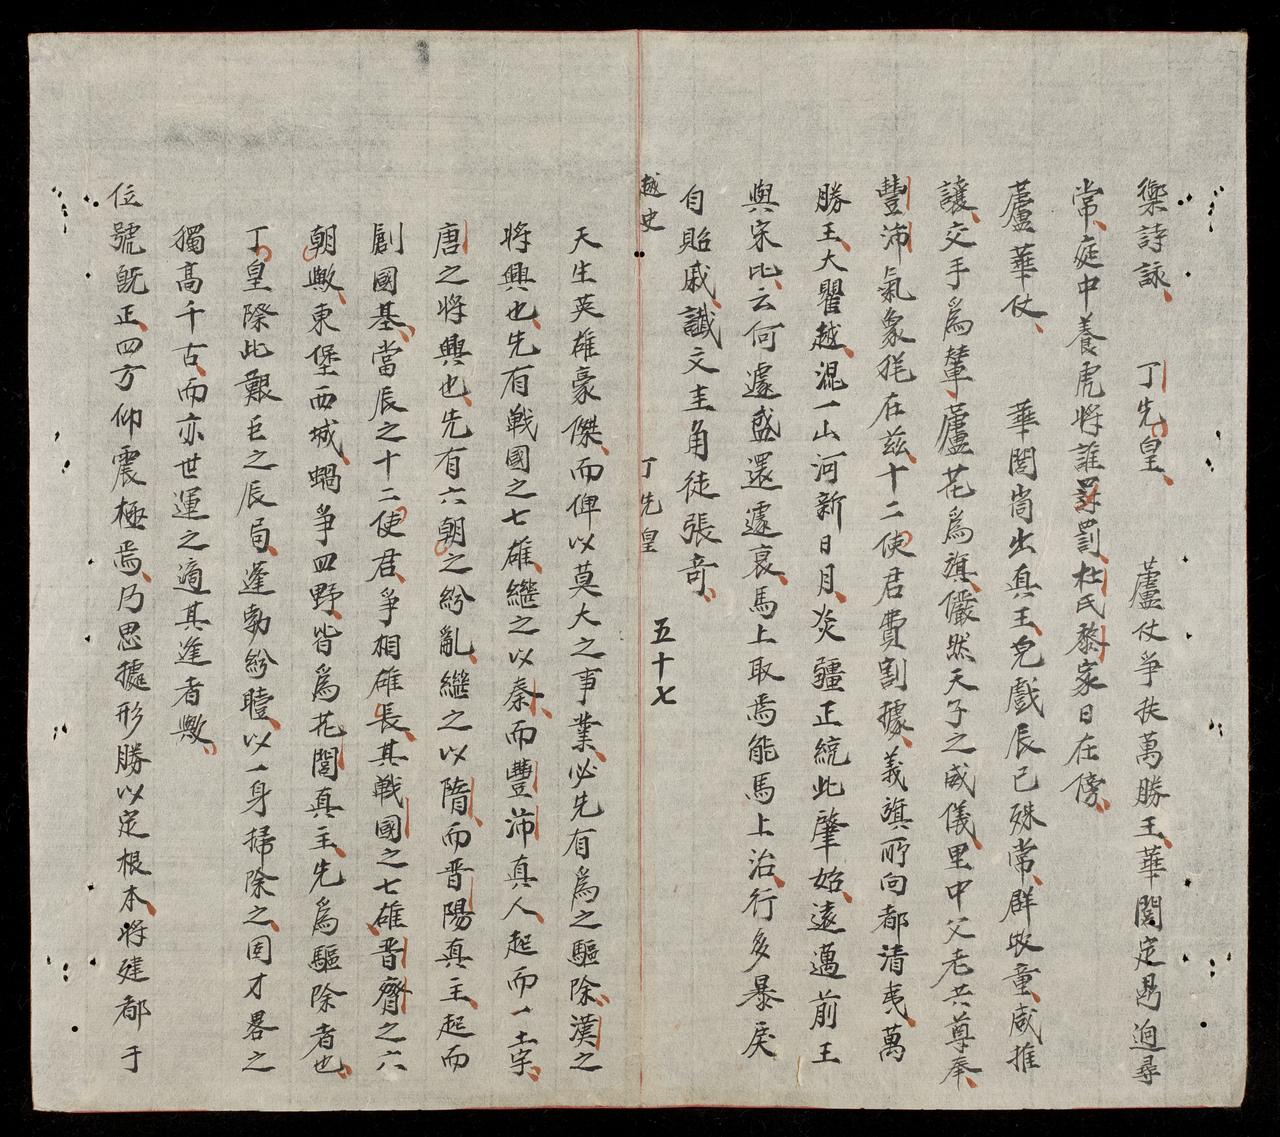 樂詩詠　丁先皇　蘆仗爭扶萬勝王華閭定鼎迥尋
常庭中養虎將誰罰杜氏黎家日在傍
蘆華仗　華閭尚出真王兒戲辰已殊常群牧童咸推
讓交手爲輦蘆花爲旗儼然天子之威儀里中父老共尊奉
豐沛氣象胣在兹十二使君費割據義旗所向都清夷萬
勝王大瞿越混一山河新日月炎疆正統此肇始遠邁前王
與宋比云何遽盛還遽哀馬上取焉能馬上治行多暴戾
自貽戚讖文圭角徒張奇
越史　丁先皇　五十七
天生英雄豪傑而俾以莫大之事業必先有爲之驅除漢之
將興也先有戰國之七雄繼之以秦而豐沛真人起而一土宇
唐之將興也先有六朝之紛亂繼之以隋而晋陽真主起而
創國基當辰之十二使君爭相雄長其戰國之七雄晋齊之六
朝歟東堡西城蝸爭四野皆爲花閭真主先爲驅除者也
丁皇際此艱巨之辰局蓬勃紛曀以一身掃除之固才畧之
獨高千古而亦世運之適其逢者歟
位號旣正四方仰震極焉乃思據形勝以定根本將建都于